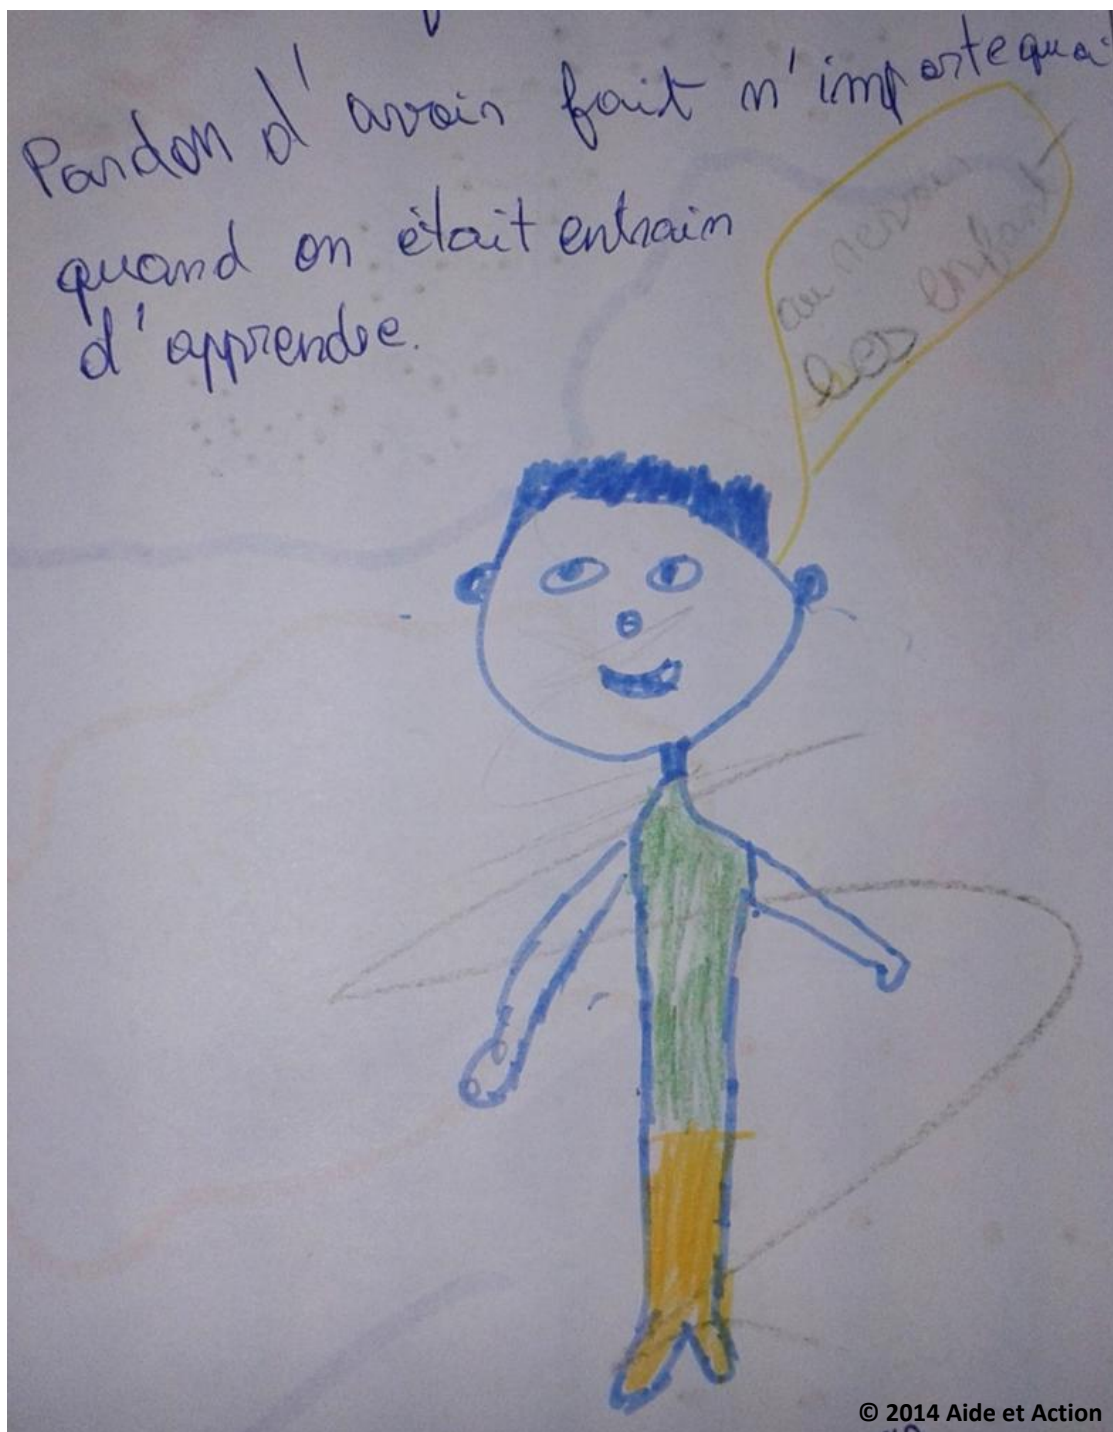 Pardon d'avoir fait n'importequoi
quand on était entrain
d'apprendre.
au revoir
les enfant
© 2014 Aide et Action